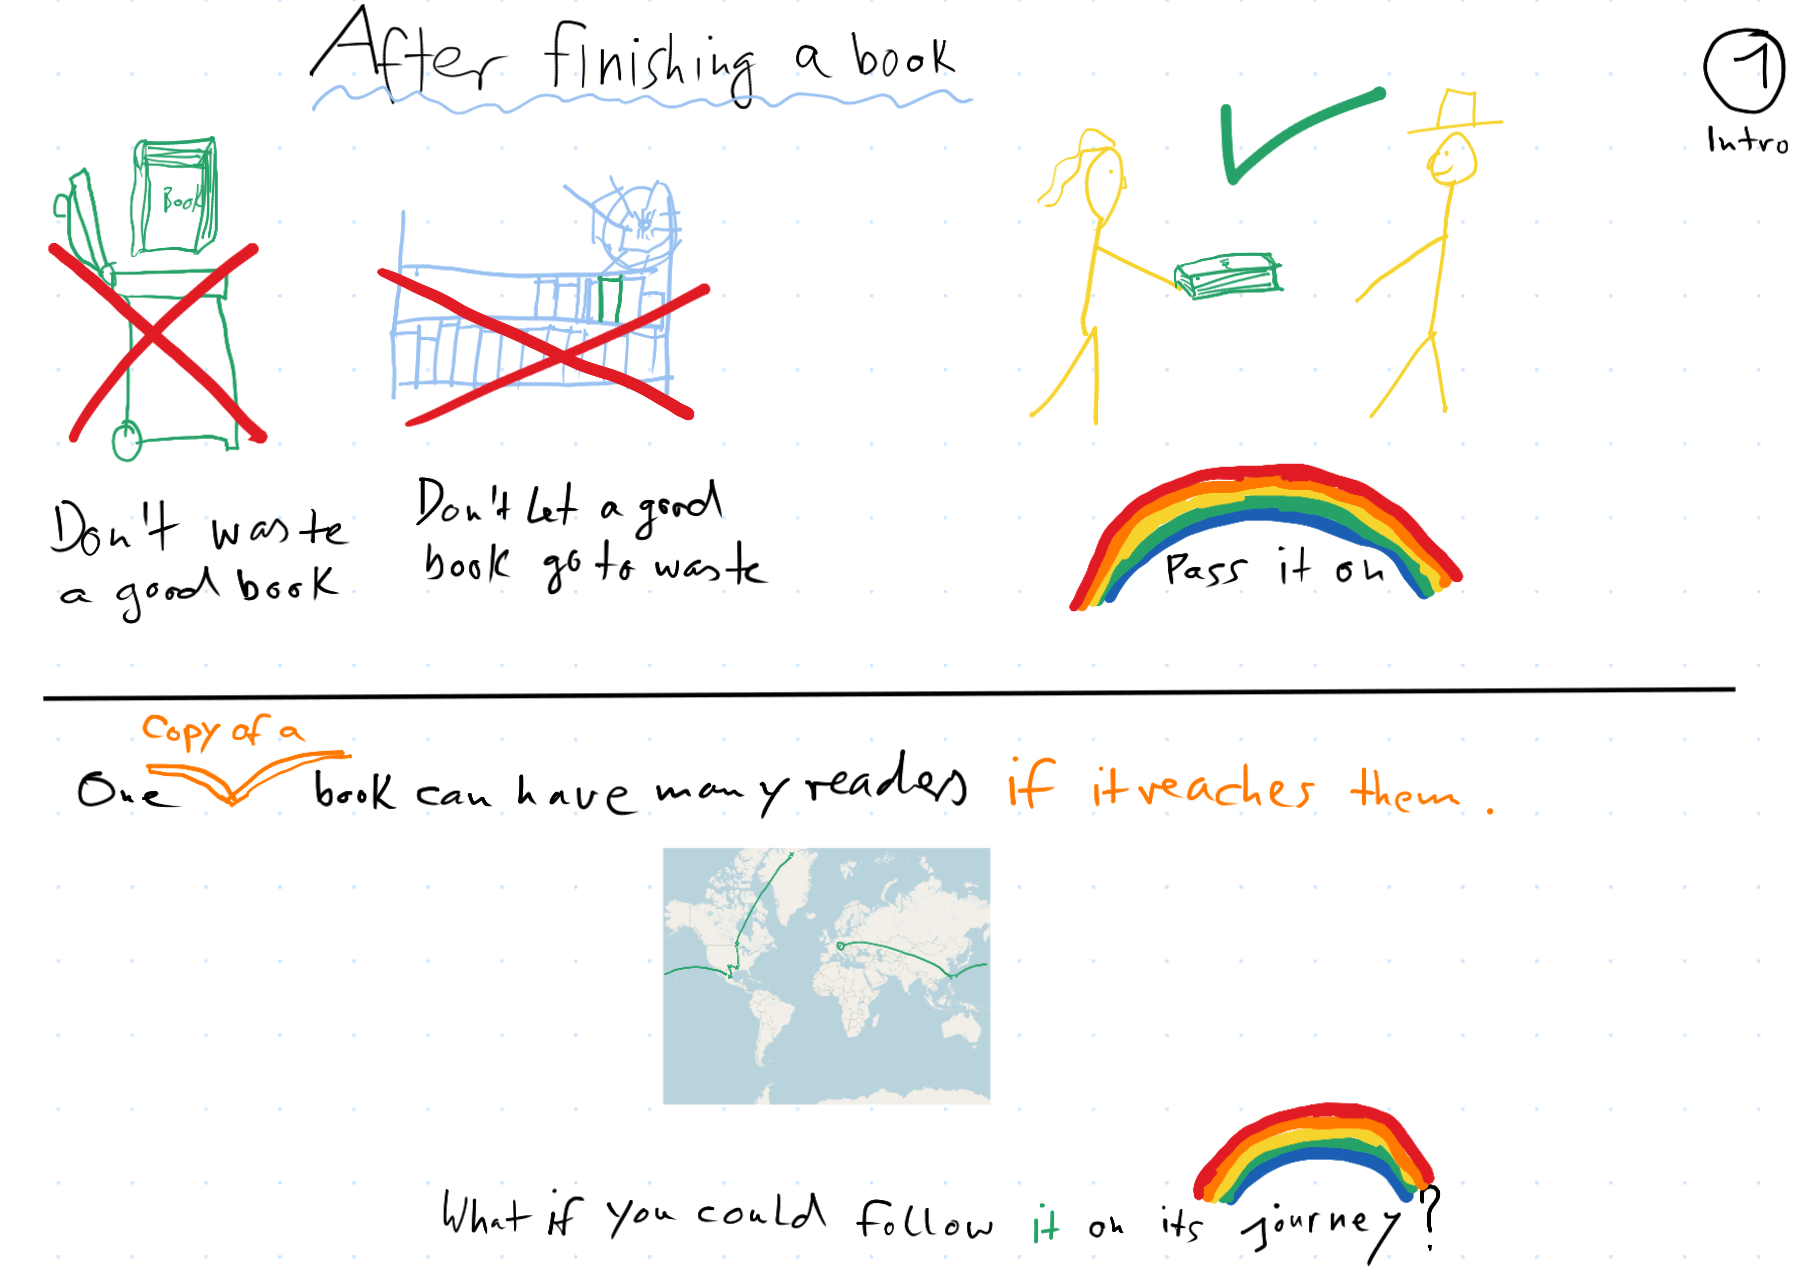 After finishing a book
1
Intro
Book
Don't waste
a good book
Don't let a good
book go to waste
Pass it on
Copy of a
One book can have many readers if it reaches them.
What if you could follow it on its journey?